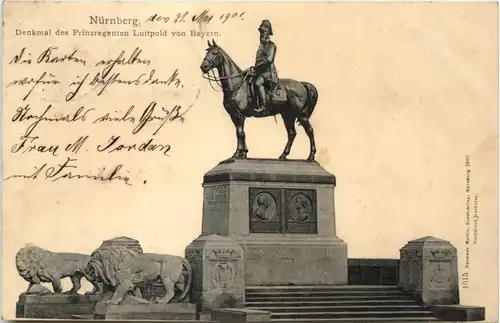 Nürnberg, den 21. Mai 1901.
Denkmal des Prinzregenten Luitpold von Bayern.
Die Karten erhalten
wofür ich bestens danke.
Nochmals viele Grüße
Frau M. Jordan
mit Familie.
1015 Hermann Martin, Kunstverlag, Nürnberg 1901
Nachdruck verboten.